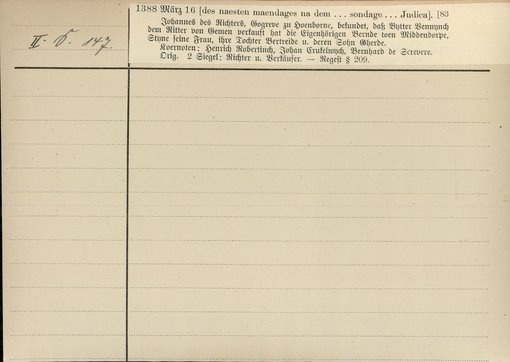 II. D. 147.
1388 März 16 [des naesten maendages na dem ... sondage ... Judica]. [83
Johannes des Richters, Gogreve zu Hoenborne, bekundet, daß Bytter Vennynch
dem Ritter von Gemen verkauft hat die Eigenhörigen Bernde wen Middendorpe,
Styne seine Frau, ihre Tochter Bertreide u. deren Sohn Gherde.
Koernoten: Henrich Robertinch, Johan Crukelwych, Bernhard de Screvere.
Orig. 2 Siegel: Richter u. Verkäufer. — Regest § 209.